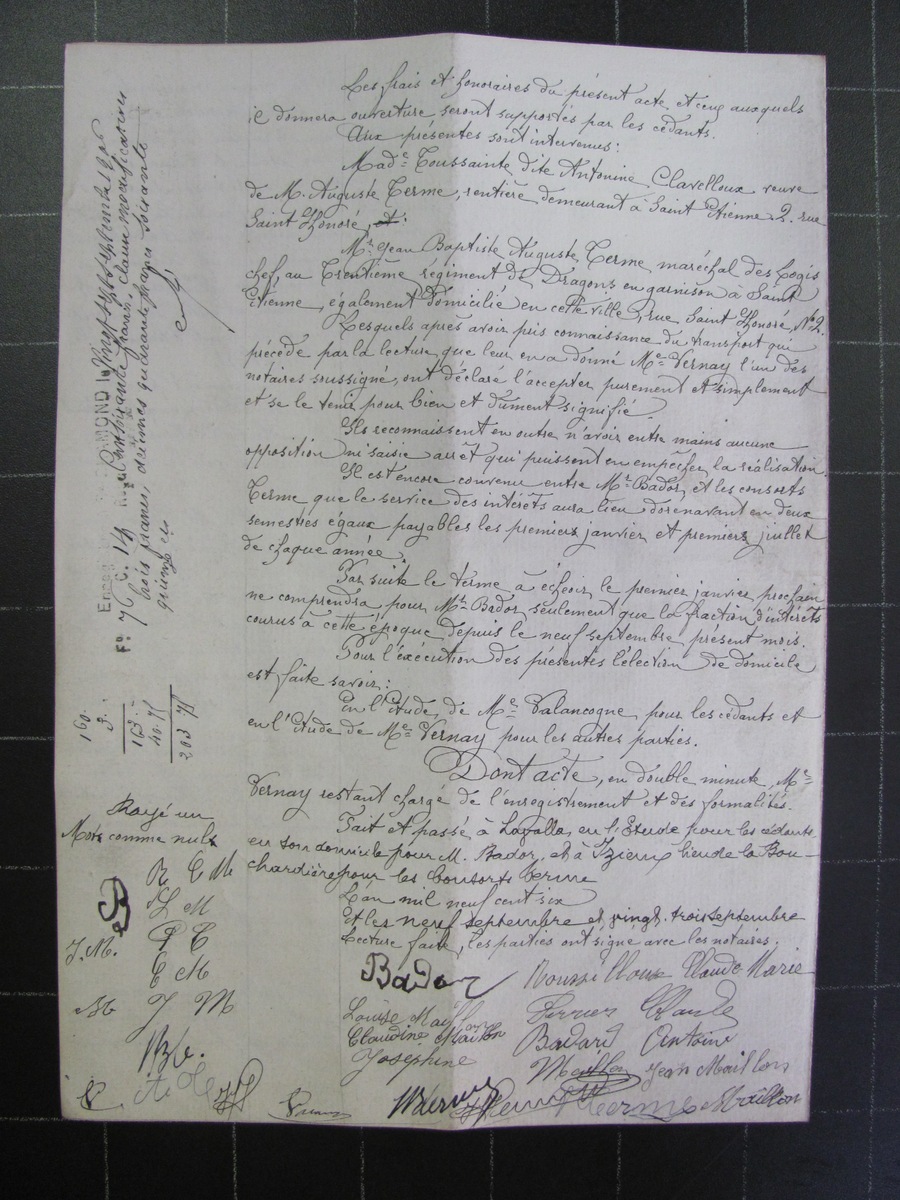 Les frais et honoraires du présent acte et ceux auxquels
il donnera ouverture seront supportés par les cédants.
Aux présentes sont intervenus:
Made Toussainte dite Antonine Clavelloux veuve
de M. Auguste Terme, rentière demeurant à Saint Etienne 2. rue
Saint Honoré, et:
Mr Jean Baptiste Auguste Terme, maréchal des Logis
chef, au Trentième régiment de Dragons en garnison à Saint
Etienne, également domicilié en cette ville, rue Saint Honoré, No 2.
Lesquels après avoir pris connaissance du transport qui
précède par la lecture que leur en a donné Me Vernay l'un des
notaires soussigné, ont déclaré l'accepter purement et simplement
et se le tenir pour bien et dument signifié.
Ils reconnaissent en outre n'avoir entre mains aucune
opposition ni saisie arrêt qui puissent en empêcher la réalisation.
Il est encore convenu entre Mr Bador, et les consorts
Terme que le service des intérêts aura lieu dorenavant en deux
semestres égaux payables les premiers janvier et premiers juillet
de chaque année.
Par suite le terme à échoir le premier janvier prochain
ne comprendra pour Mr Bador seulement que la fraction d'intérêts
courus à cette époque depuis le neuf septembre présent mois.
Pour l'exécution des présentes l'élection de domicile
est faite savoir:
En l'Etude de Me Valancogne pour les cédants et
en l'Etude de Me Vernay pour les autres parties.
Dont acte, en double minute, Me
Vernay restant chargé de l'enregistrement et des formalités.
Fait et passé à Lavalla, en l'Etude pour les cédants
en son domicile pour M. Bador, et à Izieux lieu de la Bou-
chardière pour les Consorts Terme
L'an mil neuf cent six
Et les neuf septembre et vingt-trois septembre
Lecture faite, les parties ont signé avec les notaires.
Bador Roussilloux Claude Marie
Louise Maillon Ferrier Claude
Claudine Maillon Badard Antoine
Joséphine Maillon Jean Maillon
Terme Maillon
F° 76 C. 14
trois francs, décimes quarante francs soixante
quinze c.
160.
3.
163.
40.75
203 75
Rayé un
Mots comme nuls
R C M
B L M
J. M. P C
C M
M J M